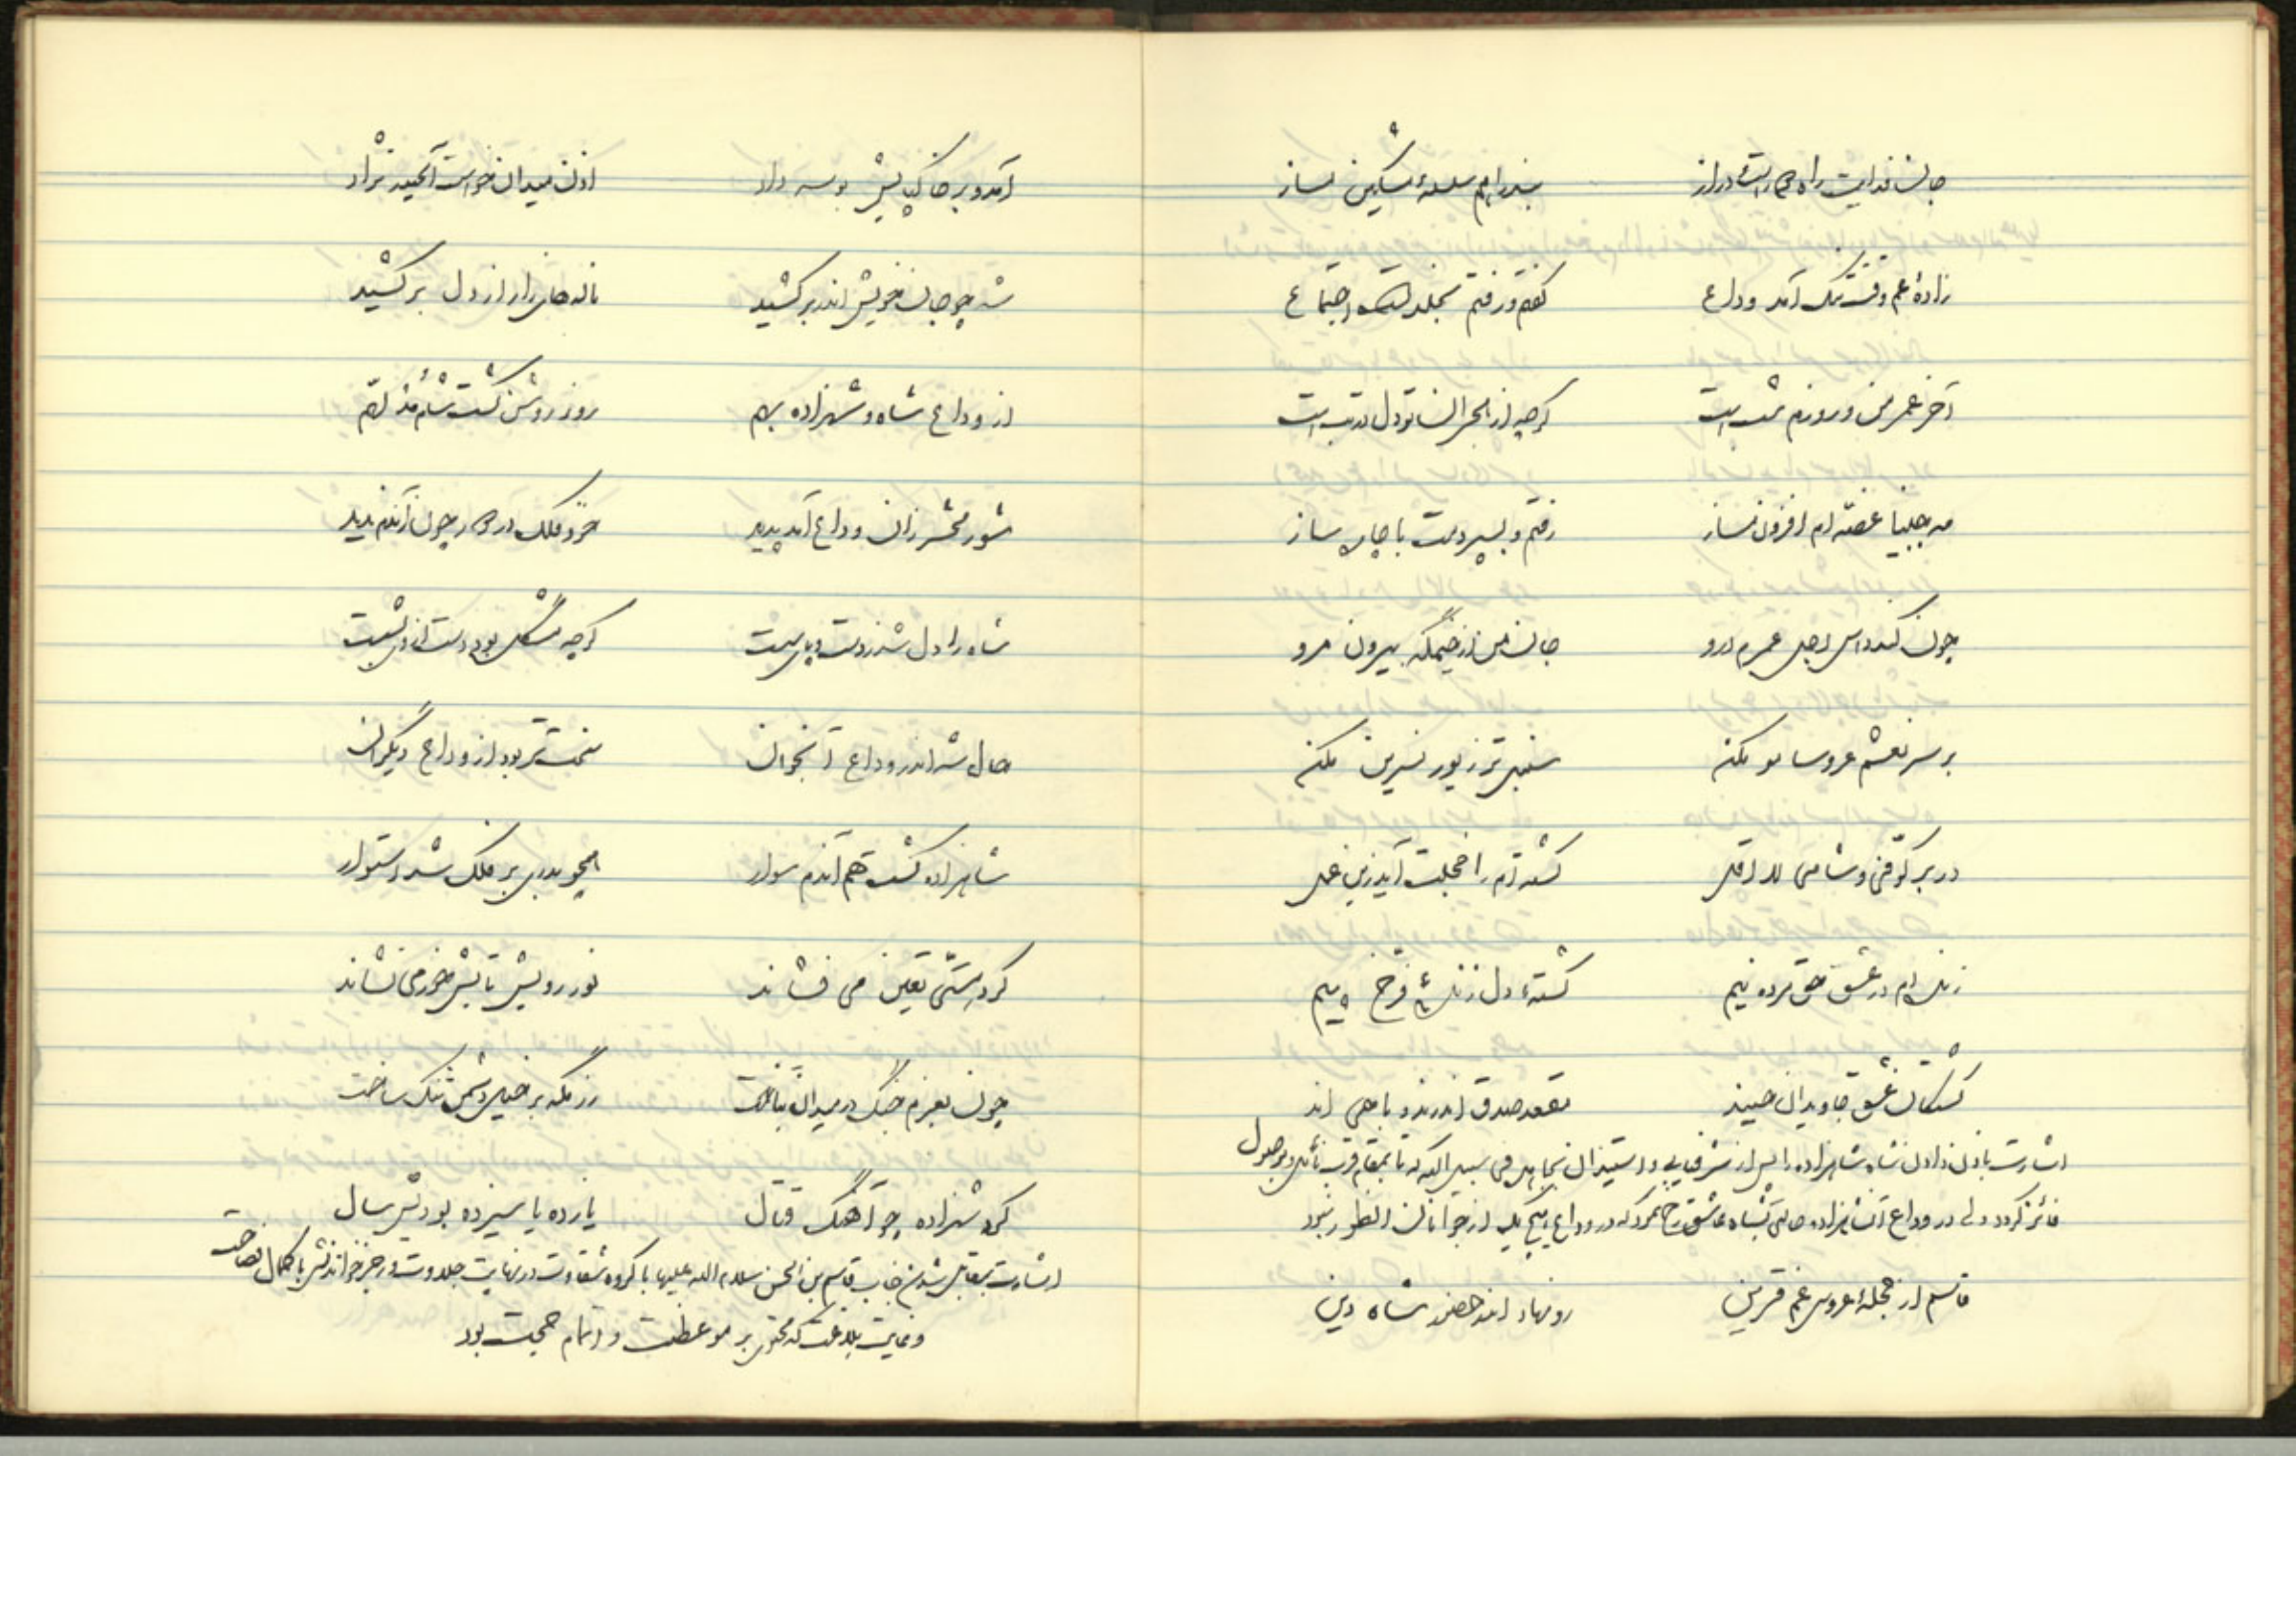 جان فدایت راه ما راهست دراز بندرام سلسله مشکین مساز
زاده عم وقت تنگ آمد وداع گفتم و رفتم بخلدت اجتماع
آخر عمر من و روزم شب است گرچه از هجران تو دل در تب است
مه جبینا غصه‌ام افزون مساز رفتم و بسپردمت با چاره ساز
چون کند داس اجل عمرم درو جان من از خیمگه بیرون مرو
بر سر نعشم عروسا مو مکن سنبل تر زیور نسرین مکن
در بر کوفی و شامی لااقل کشته‌ام را خجلت آید زین عمل
زنده‌ام در عشق حق مرده نیم کشتهٔ دل زندهٔ فرخ پیم
کشتگان عشق جاویدان حیند مقعد صدق اندرند و با حی اند
اشارت باذن دادن شاه شاهزاده را پس از شرفیابی و استیذان بجهاد فی سبیل الله که تا بمقام قرب نائل و بوصول
فائز گردد ولی در وداع آن شاهزاده حالتی بشاه عاشق رخ نمود که در وداع هیچ یک از جوانان آنطور نبود
قاسم از حجلهٔ عروس غم قرین رو نهاد اندر حضور شاه دین
آمد و بر خاک پایش بوسه داد اذن میدان خواست آنحیدر نژاد
شه چو جان خویش اندر بر کشید ناله‌های زار از دل بر کشید
از وداع شاه و شهزاده بهم روز روشن گشت شام
شور محشر زان وداع آمد پدید خود فلک در چون آندم ندید
شاه را دل شد ز دست و پای بست گرچه مشکل بود دست از وی بشست
حال شه اندر وداع آنجوان سخت‌تر بود از وداع دیگران
شاهزاده گشت هم آندم سوار همچو بدری بر فلک شد استوار
گرد هستی یقین می فشاند نور رویش تابش خور می نشاند
چون بعزم جنگ در میدان بتاخت رزمگه بر خیل دشمن تنگ ساخت
کرد شهزاده چو آهنگ قتال یازده یا سیزده بودیش سال
اشارت بمقابل شدن جناب قاسم بن الحسن سلام الله علیها با گروه شقاوت در نهایت جلادت و رجز خواندنش با کمال فصاحت
و نهایت بلاغت که محتوی بر موعظت و اتمام حجت بود